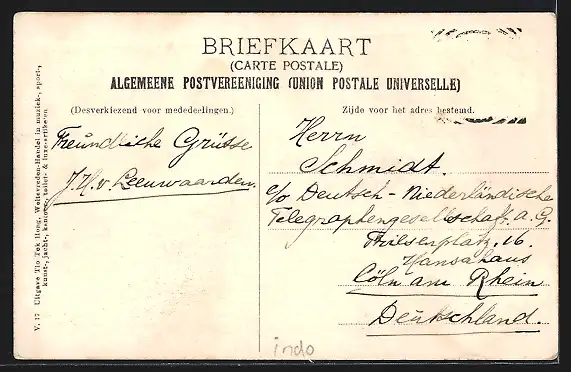 BRIEFKAART
(CARTE POSTALE)
ALGEMEENE POSTVEREENIGING (UNION POSTALE UNIVERSELLE)
(Desverkiezend voor mededeelingen.)
Zijde voor het adres bestemd.
Freundliche Grüsse
J. H. v. Leeuwaarden.
Herrn
Schmidt.
c/o Deutsch-Niederländische
Telegraphengesellschaft. A. G.
16.
Hansahaus
Cöln am Rhein
Deutschland.
V. 17 Uitgave Tio Tek Hong, Weltevreden-Handel in muziek-, sport-,
kunst-, jacht-, kantoor-, toilet- & luxe-artikelen
indo